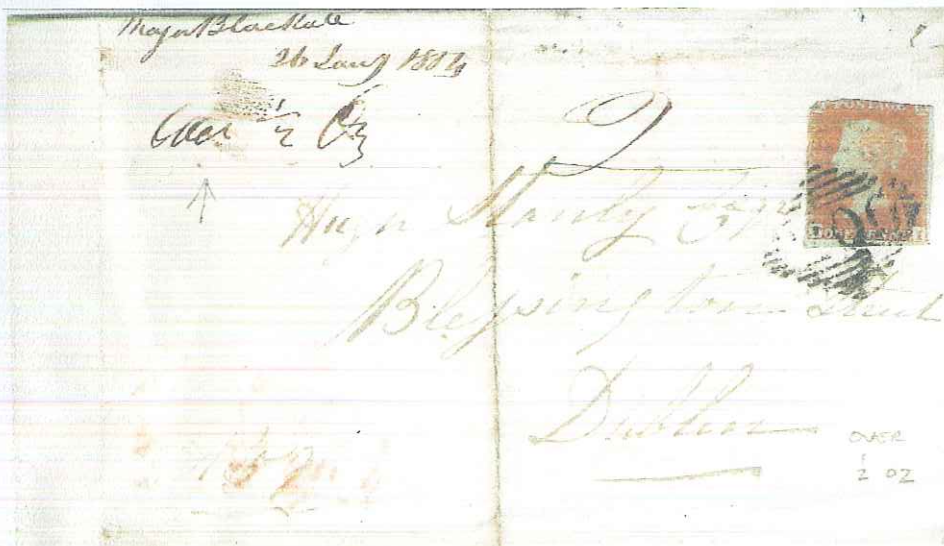 Major Blackall
26 Jany 1844
Over 1/2 Oz
2
Hugh Stanly Esqr
Blessington Street
Dublin
OVER
1/2 OZ